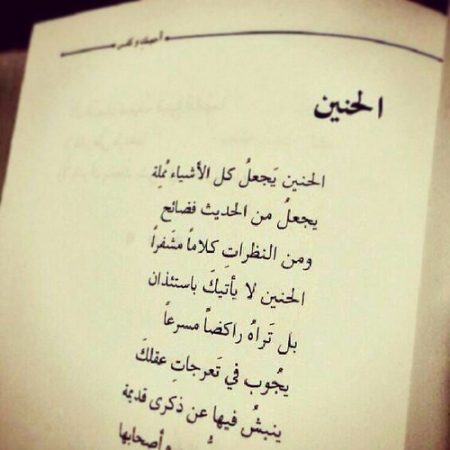 أحببتك وكفى
الحنين
الحنين يَجعلُ كل الأشياء مُملة
يجعلُ من الحديث فضائح
ومن النظراتِ كلاماً مشفراً
الحنين لا يأتيكَ باستئذان
بل تَراهُ راكضاً مسرعاً
يجُوب في تَعرجاتِ عقلكَ
ينبشُ فيها عن ذكرى قديمة
وأصحابها